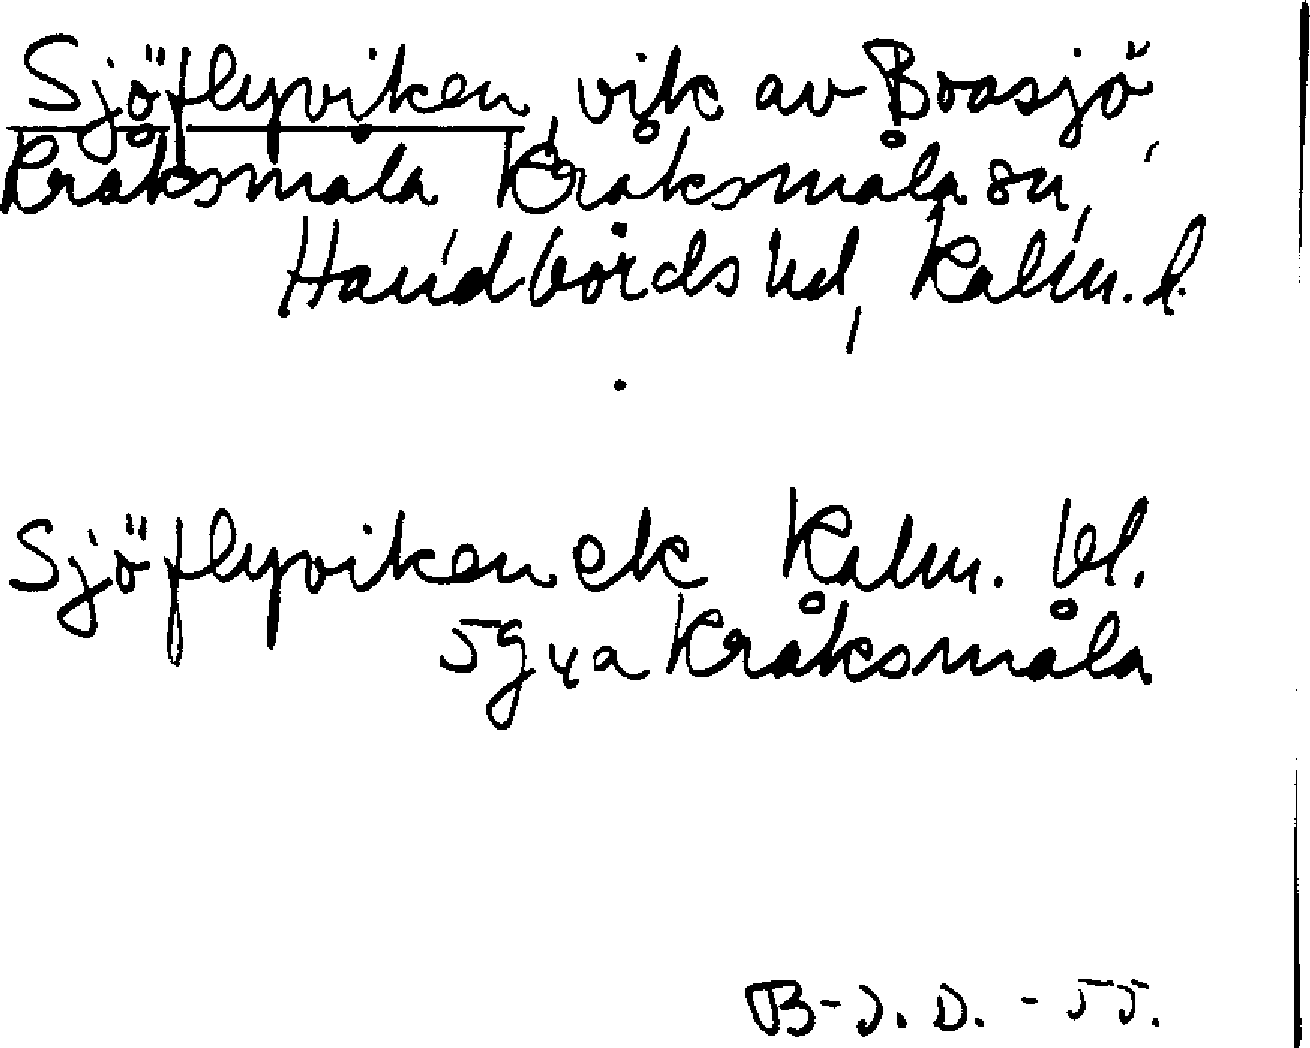 Sjöflyviken, vik av Boasjö,
Kråksmåla, Kråksmåla sn,
Handbörds hd, Kalm. l.
Sjöflyviken ek Kalm. bl.
5g4a Kråksmåla
B-J. D. - 55.